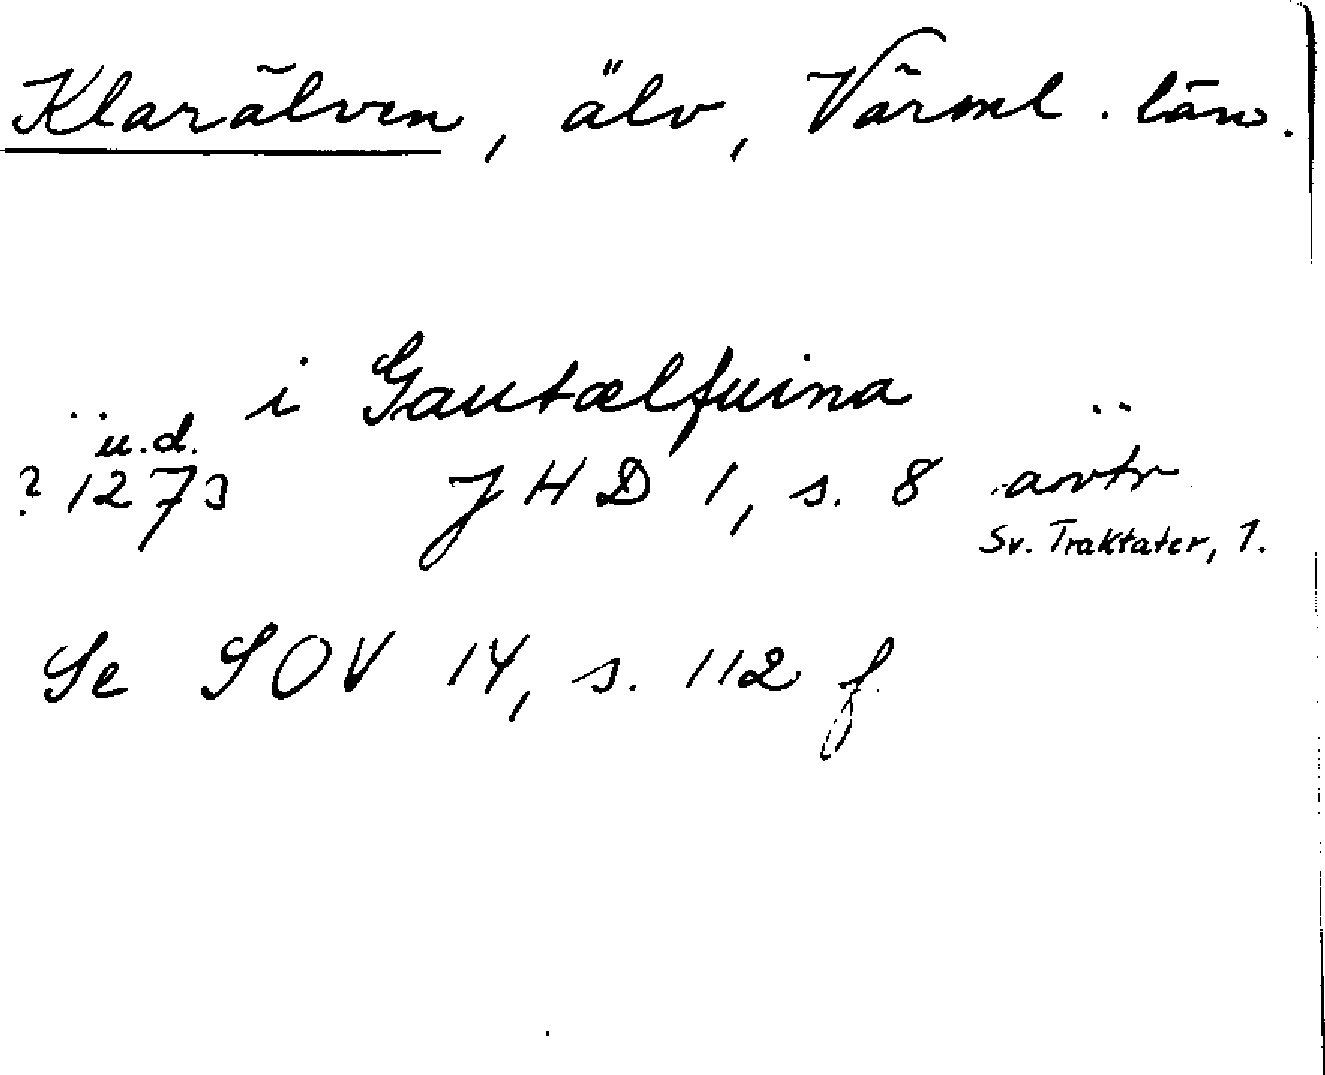 Klarälven, älv, Värml. län.
.. i Gautælfuina ..
u.d.
? 1273 JHD 1, s. 8 avtr
Sv. Traktater, 1.
Se SOV 14, s. 112 f.